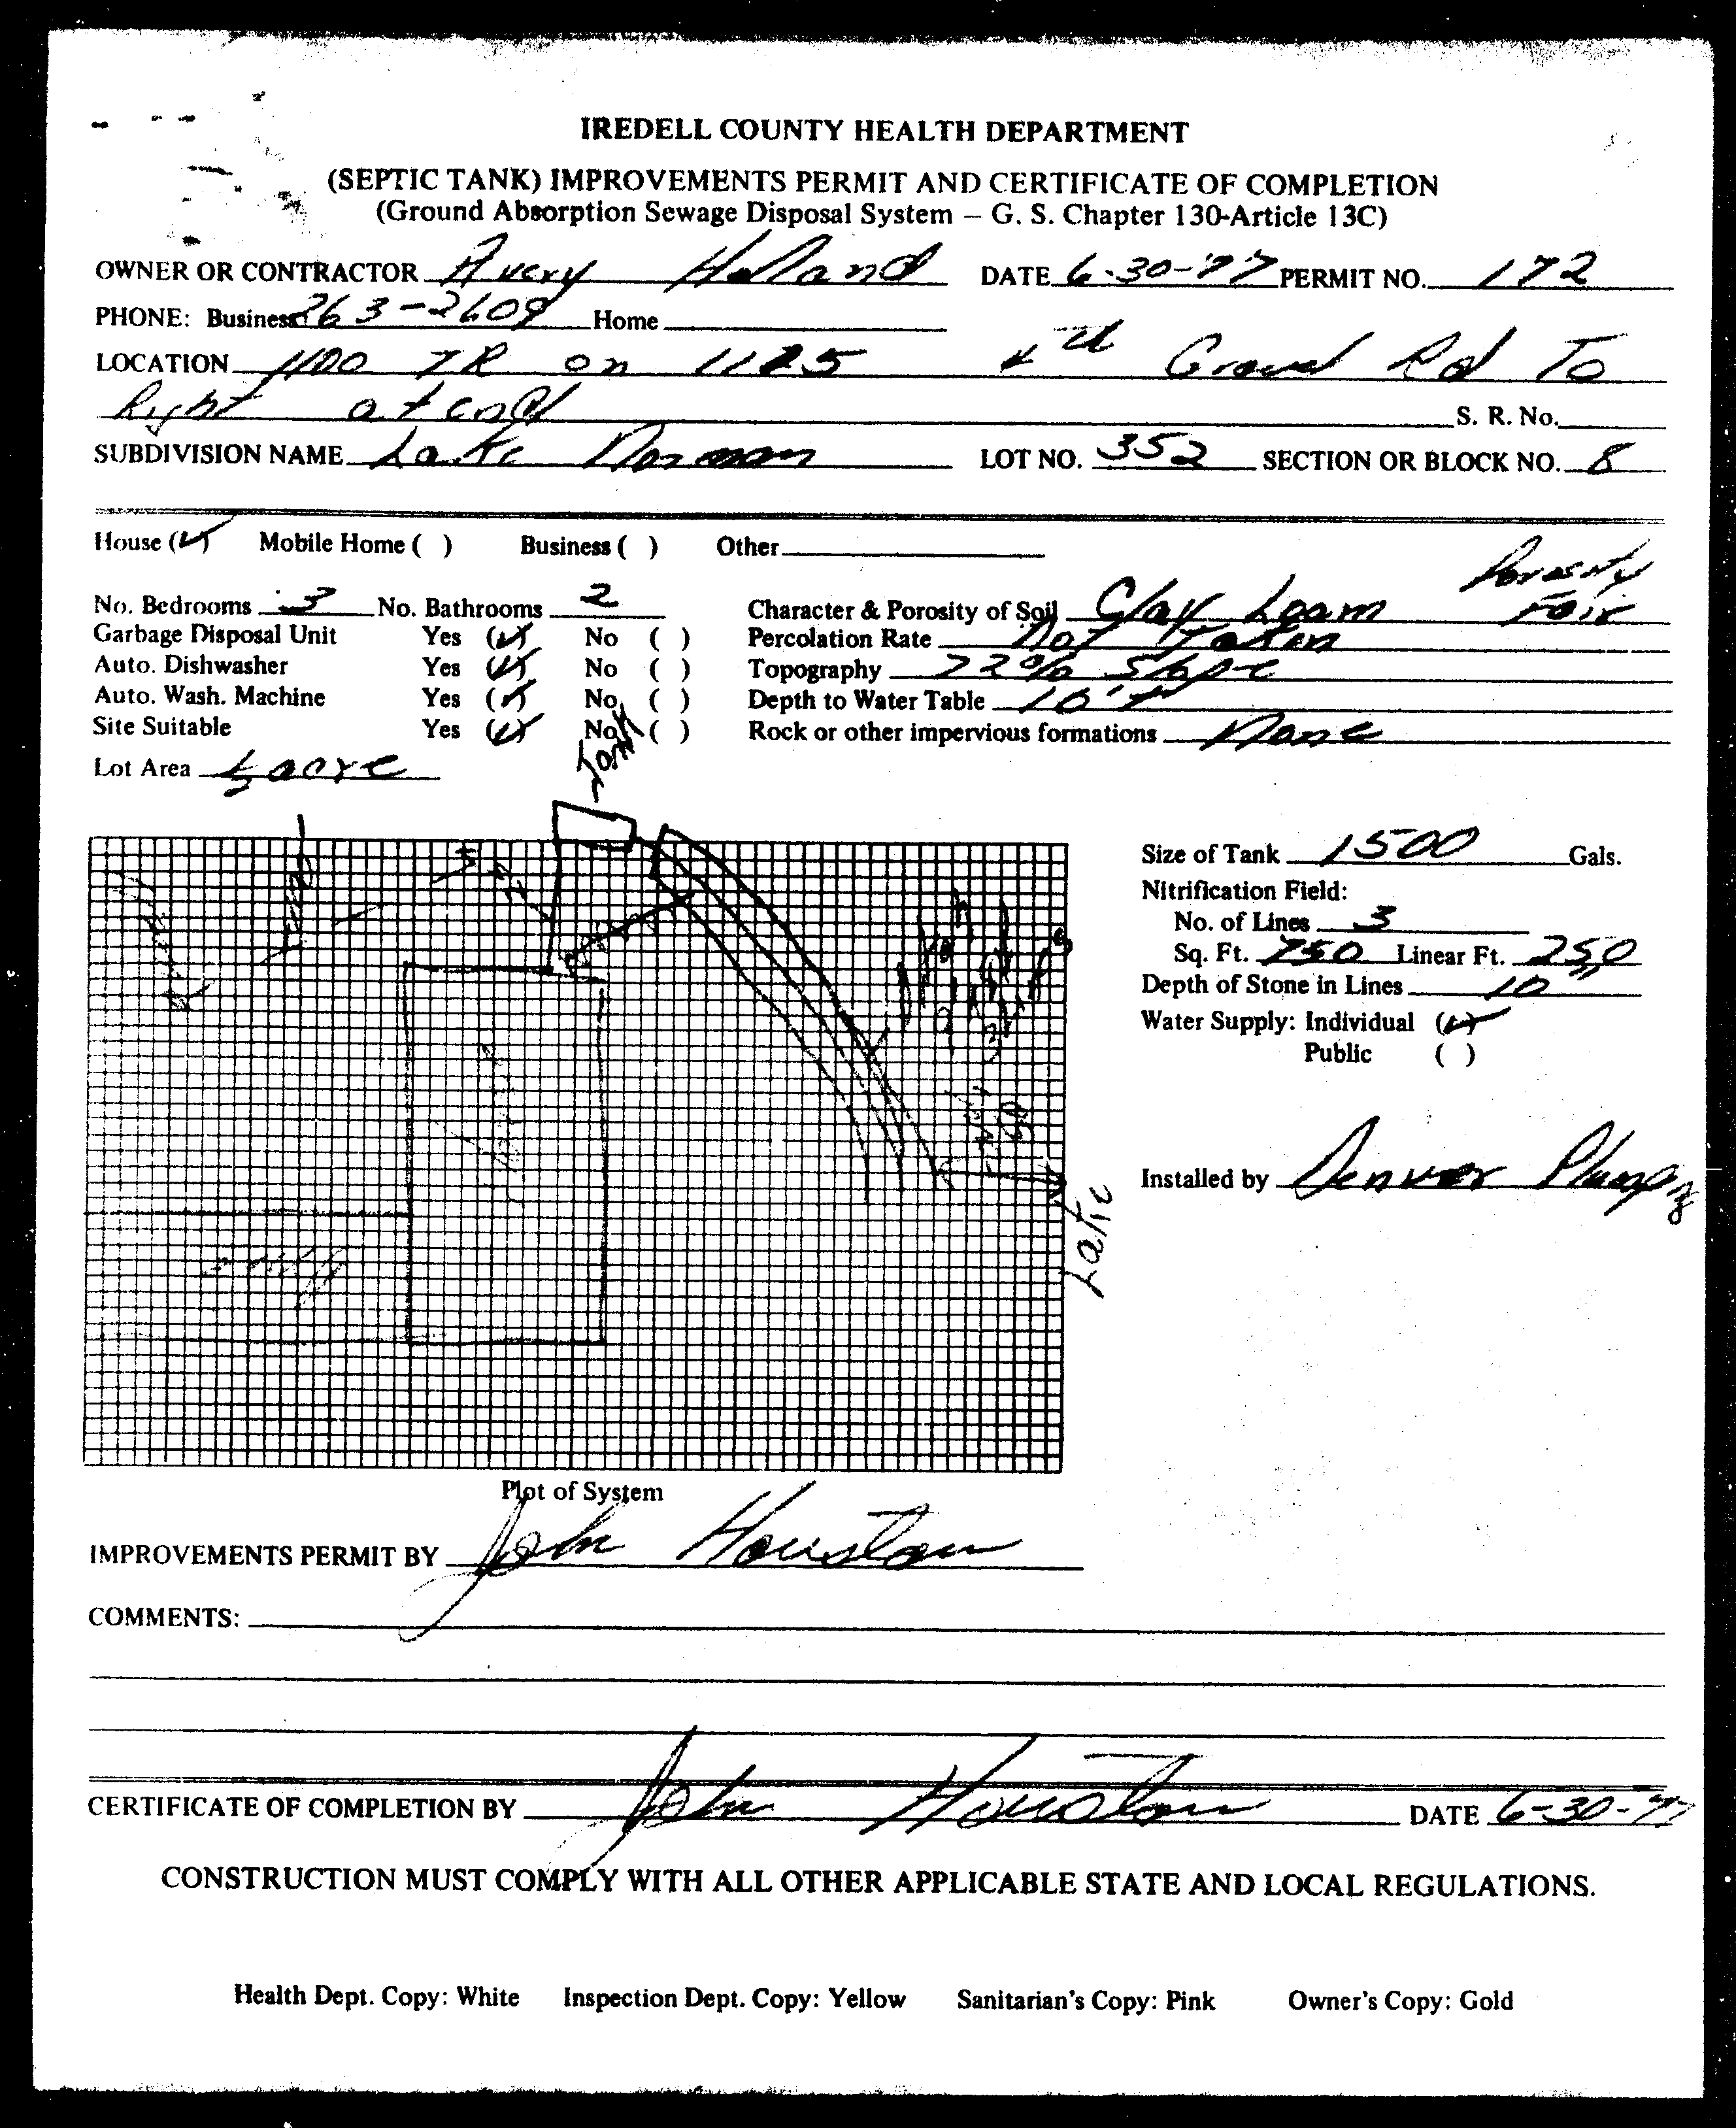 IREDELL COUNTY HEALTH DEPARTMENT
(SEPTIC TANK) IMPROVEMENTS PERMIT AND CERTIFICATE OF COMPLETION
(Ground Absorption Sewage Disposal System – G. S. Chapter 130-Article 13C)
OWNER OR CONTRACTOR Avery Holland DATE 6-30-77 PERMIT NO. 172
PHONE: Business 263-2609 Home
LOCATION 1100 TR on 1125 4th Gravel Rd To
Right at end S. R. No.
SUBDIVISION NAME Lake Norman LOT NO. 352 SECTION OR BLOCK NO. 8
House (✓) Mobile Home ( ) Business ( ) Other
Porosity
No. Bedrooms 3 No. Bathrooms 2 Character & Porosity of Soil Clay Loam Fair
Garbage Disposal Unit Yes (✓) No ( ) Percolation Rate Not Taken
Auto. Dishwasher Yes (✓) No ( ) Topography 22% Slope
Auto. Wash. Machine Yes (✓) No ( ) Depth to Water Table 10'+
Site Suitable Yes (✓) No ( ) Rock or other impervious formations None
Lot Area acre
Tank
Size of Tank 1500 Gals.
Nitrification Field:
No. of Lines 3
Sq. Ft. 750 Linear Ft. 250
Depth of Stone in Lines 10"
Water Supply: Individual (✓)
Public ( )
Installed by Denver Plumping
Lake
Plot of System
IMPROVEMENTS PERMIT BY John Houston
COMMENTS:
CERTIFICATE OF COMPLETION BY John Houston DATE 6-30-77
CONSTRUCTION MUST COMPLY WITH ALL OTHER APPLICABLE STATE AND LOCAL REGULATIONS.
Health Dept. Copy: White Inspection Dept. Copy: Yellow Sanitarian's Copy: Pink Owner's Copy: Gold